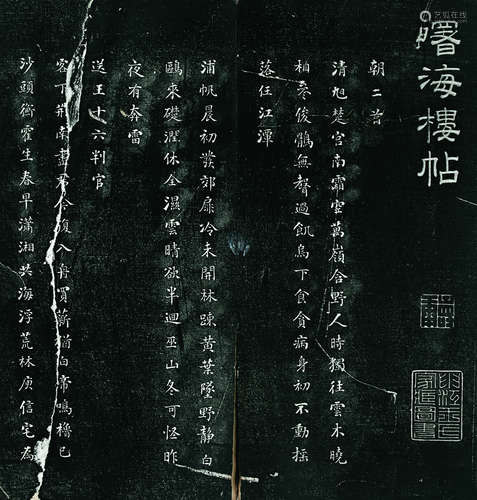 曙海樓帖
朝二首
清旭楚宮南霜空萬嶺含野人時獨往雲木曉
相參俊鶻無聲過飢烏下食貪病身初不動搖
落任江潭
浦帆晨初發郊扉冷未開林疎黃葉墜野靜白
鷗來礎潤休全濕雲晴欲半迴巫山冬可怪昨
夜有奔雷
送王十六判官
客下荊南盡君今復入舟買薪猶白帝鳴櫓已
沙頭衡霍生春早瀟湘共海浮荒林庾信宅為